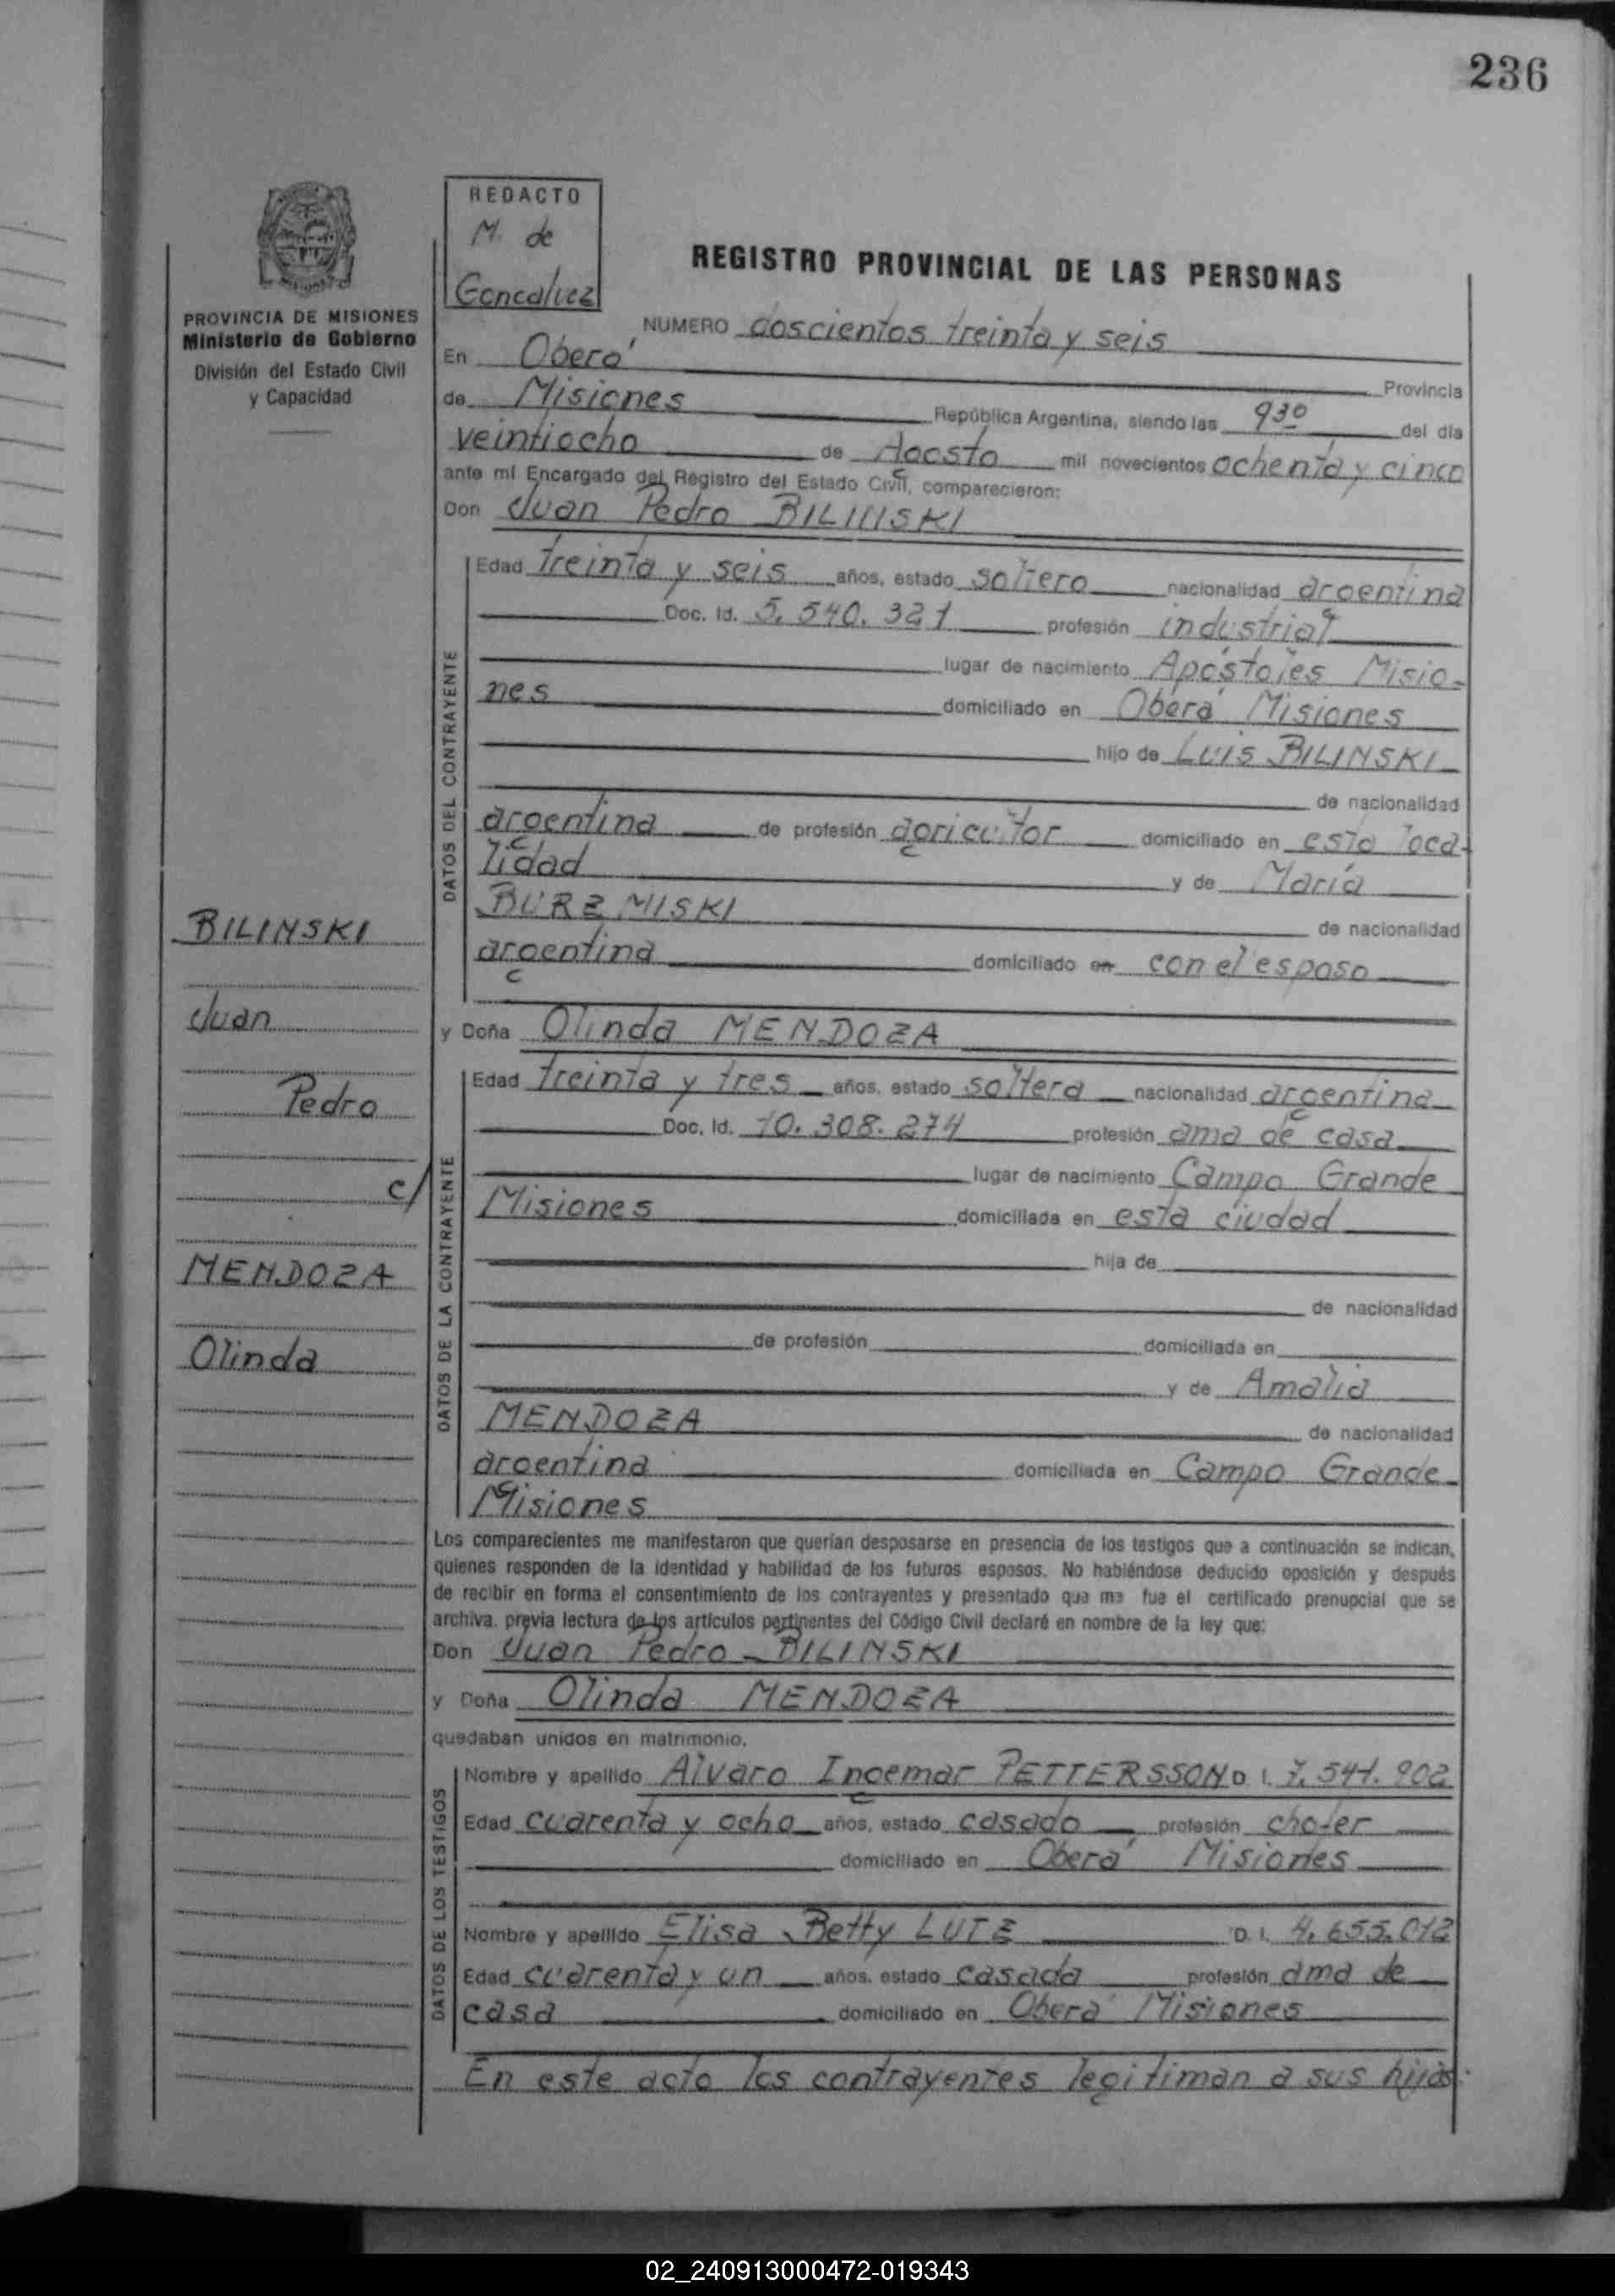 236
REDACTO
M. de
Goncalvez
REGISTRO PROVINCIAL DE LAS PERSONAS
PROVINCIA DE MISIONES
Ministerio de Gobierno
División del Estado Civil
y Capacidad
NUMERO doscientos treinta y seis
En Oberá Provincia
de Misiones República Argentina, siendo las 9 30 del día
veintiocho de Agosto mil novecientos ochenta y cinco
ante mí Encargado del Registro del Estado Civil, comparecieron:
Don Juan Pedro BILINSKI
DATOS DEL CONTRAYENTE
Edad treinta y seis años, estado soltero nacionalidad argentina
Doc. Id. 5.540.321 profesión industrial
lugar de nacimiento Apóstoles Misio-
nes domiciliado en Oberá Misiones
hijo de Luis BILINSKI
de nacionalidad
argentina de profesión agricultor domiciliado en esta loca-
lidad y de María
BURZMISKI de nacionalidad
argentina domiciliado en con el esposo
BILINSKI
Juan
Pedro
c/
MENDOZA
Olinda
y Doña Olinda MENDOZA
DATOS DE LA CONTRAYENTE
Edad treinta y tres años, estado soltera nacionalidad argentina
Doc. Id. 10.308.274 profesión ama de casa
lugar de nacimiento Campo Grande
Misiones domiciliada en esta ciudad
hija de
de nacionalidad
de profesión domiciliada en
y de Amalia
MENDOZA de nacionalidad
argentina domiciliada en Campo Grande
Misiones
Los comparecientes me manifestaron que querían desposarse en presencia de los testigos que a continuación se indican,
quienes responden de la identidad y habilidad de los futuros esposos. No habiéndose deducido oposición y después
de recibir en forma el consentimiento de los contrayentes y presentado que me fue el certificado prenupcial que se
archiva, previa lectura de los artículos pertinentes del Código Civil declaré en nombre de la ley que:
Don Juan Pedro BILINSKI
y Doña Olinda MENDOZA
quedaban unidos en matrimonio.
DATOS DE LOS TESTIGOS
Nombre y apellido Alvaro Ingemar PETTERSSON D. I. 7.541.902
Edad cuarenta y ocho años, estado casado profesión chofer
domiciliado en Oberá Misiones
Nombre y apellido Elisa Betty LUTZ D. I. 4.655.012
Edad cuarenta y un años, estado casada profesión ama de
casa domiciliado en Oberá Misiones
En este acto los contrayentes legitiman a sus hijos:
02_240913000472-019343